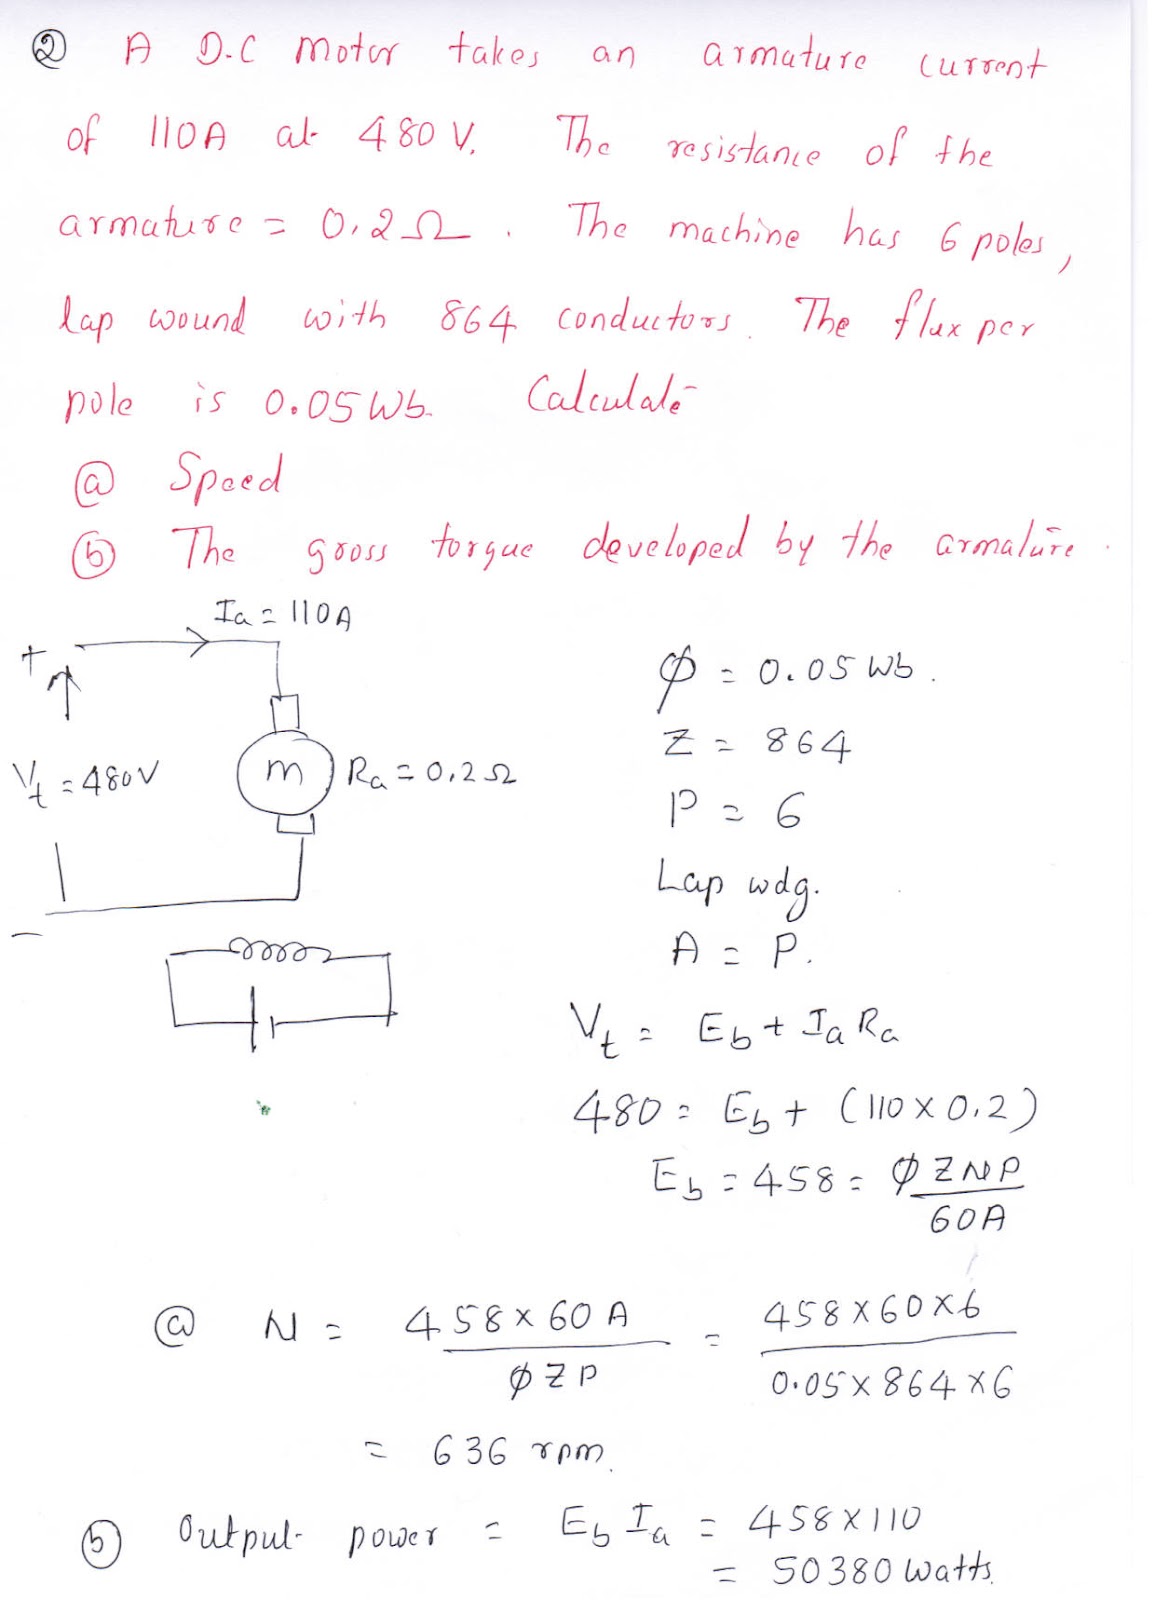 ② A D.C motor takes an armature current
of 110A at 480 V. The resistance of the
armature = 0.2Ω. The machine has 6 poles,
lap wound with 864 conductors. The flux per
pole is 0.05 Wb. Calculate
ⓐ Speed
ⓑ The gross torque developed by the armature.
Ia = 110A
+
Vt = 480V
m
Ra = 0.2Ω
-
φ = 0.05 Wb.
Z = 864
P = 6
Lap wdg.
A = P.
Vt = Eb + Ia Ra
480 = Eb + (110 x 0.2)
Eb = 458 = φZNP / 60A
ⓐ N = 458 x 60 A / φZP = 458 x 60 x 6 / 0.05 x 864 x 6
= 636 rpm.
ⓑ Output power = Eb Ia = 458 x 110
= 50380 Watts.